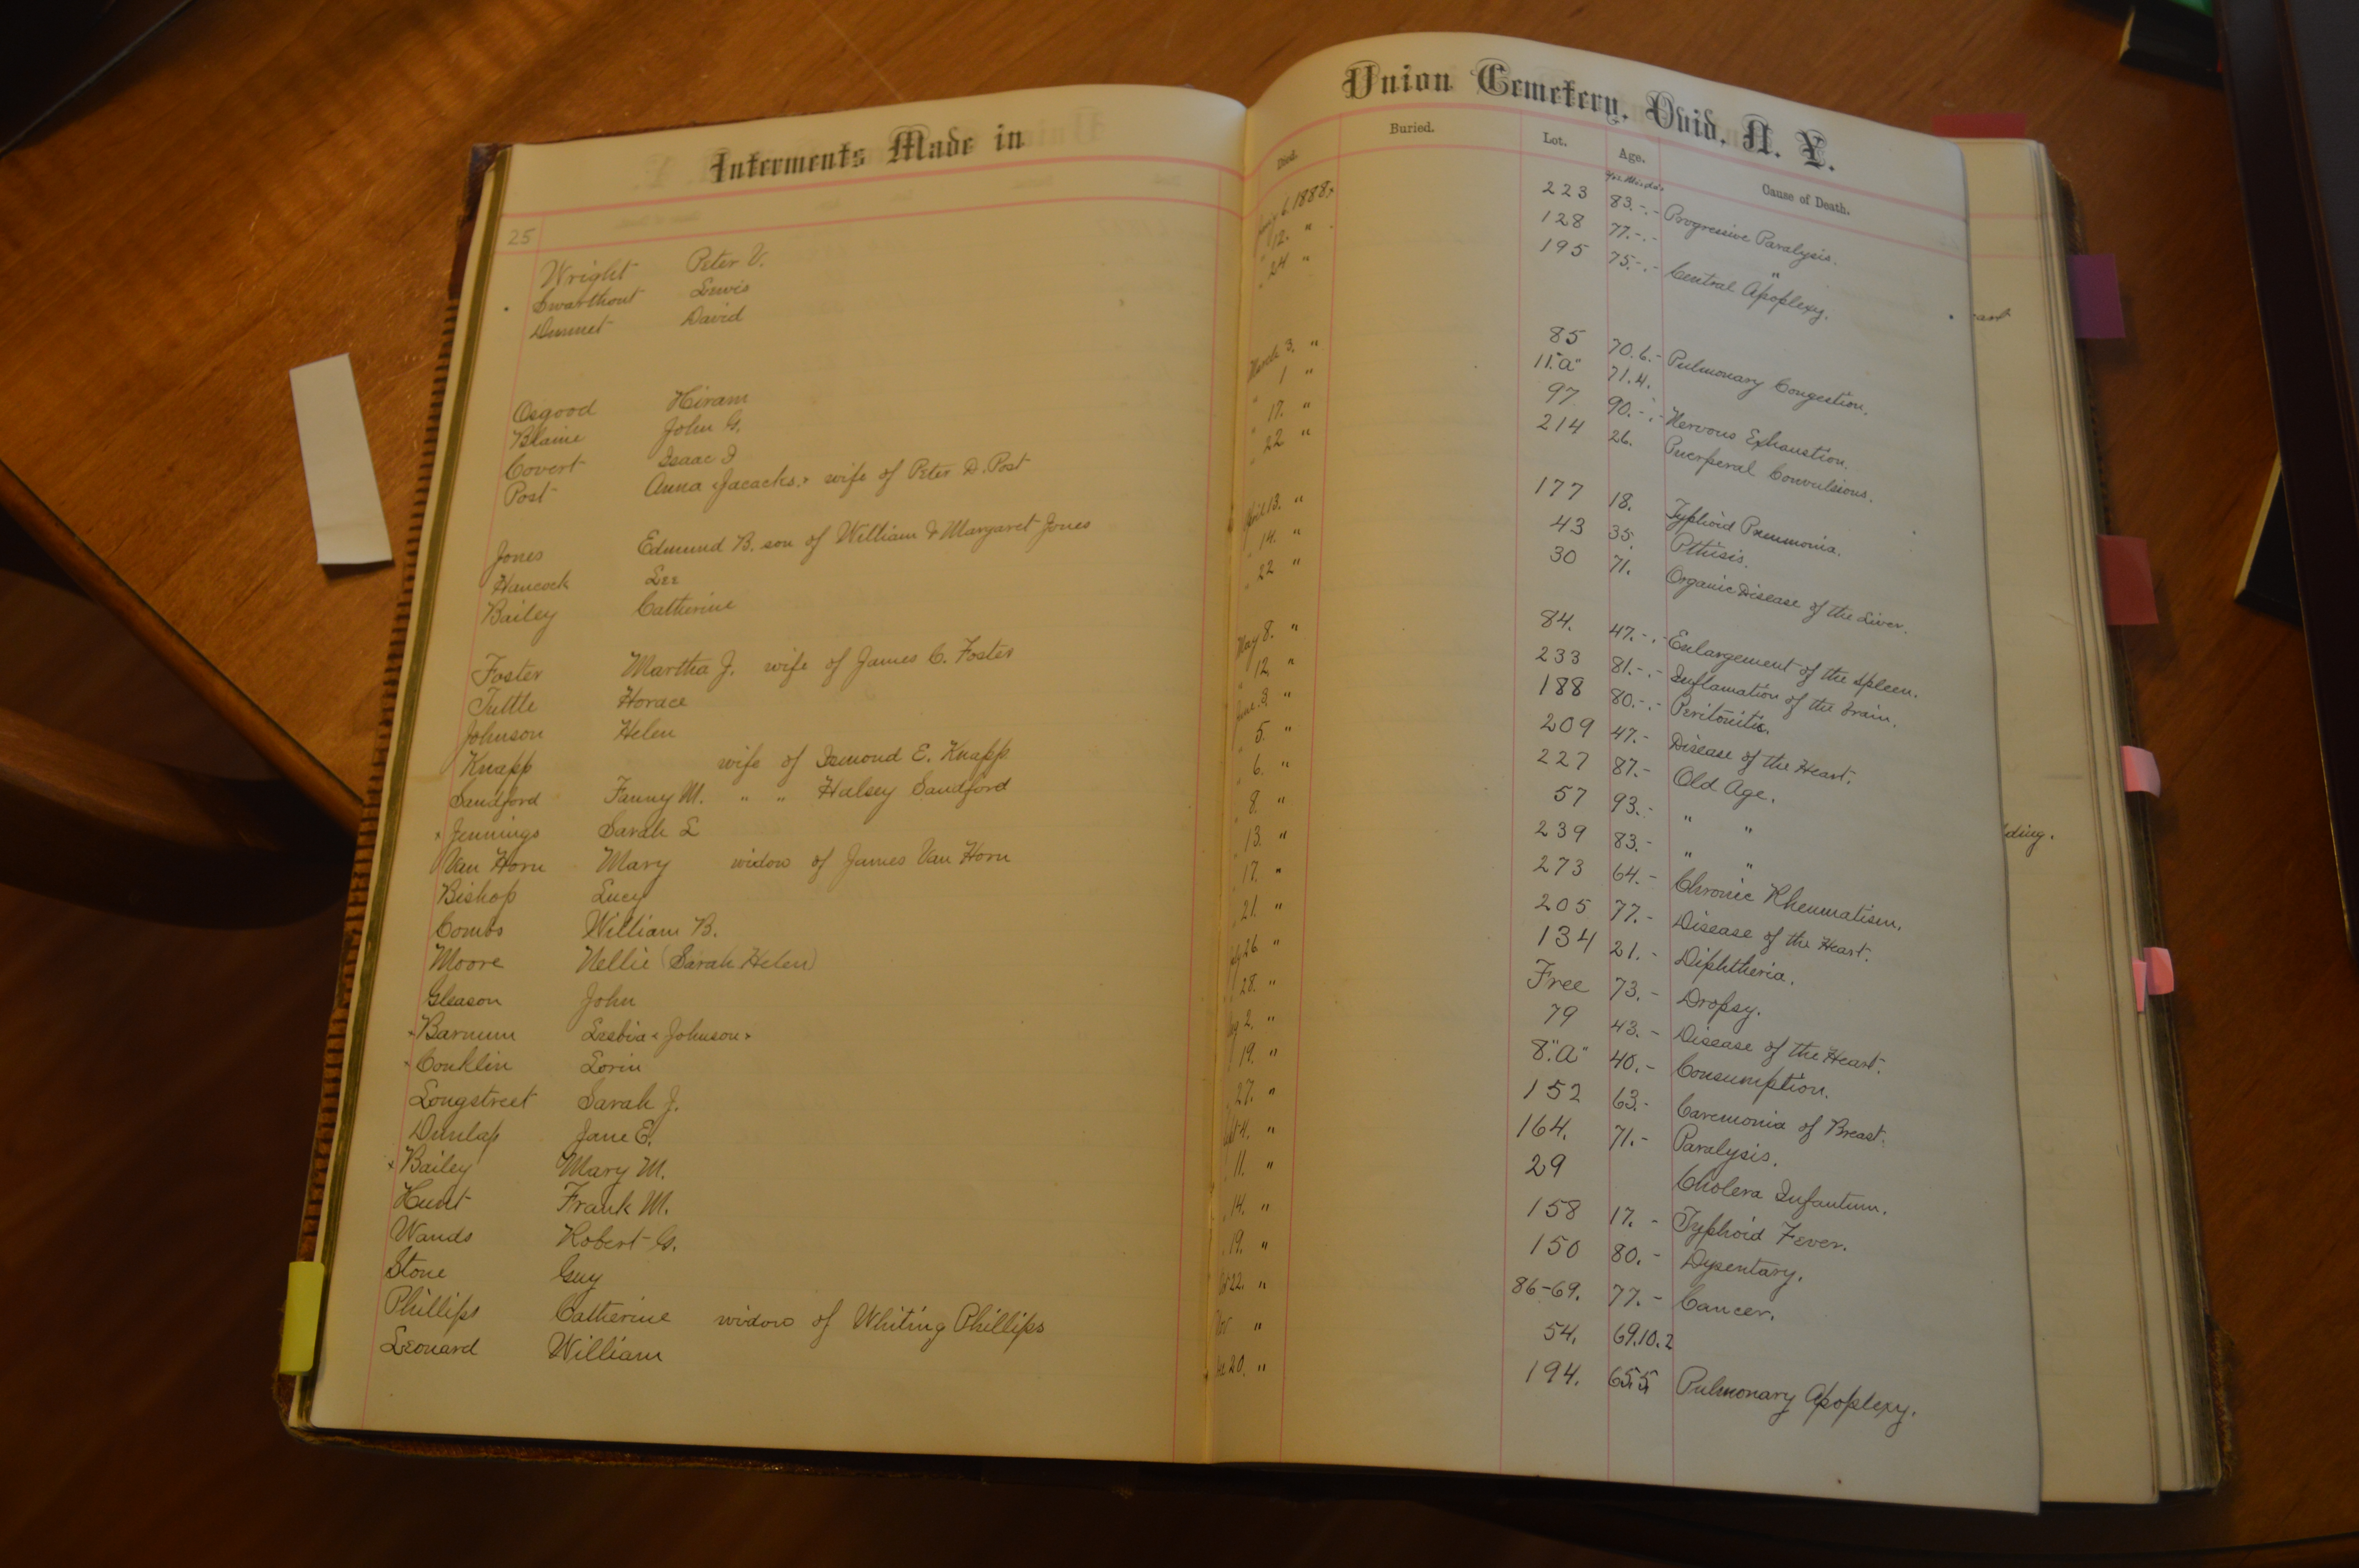 Interments Made in
25
Wright Peter V.
Swarthout Lewis
Dunnet David
Osgood Hiram
Blaine John G.
Covert Isaac I
Post Anna (Jacacks.) wife of Peter D. Post
Jones Edmund B. son of William & Margaret Jones
Hancock Lee
Bailey Catherine
Foster Martha J. wife of James C. Foster
Tuttle Horace
Johnson Helen
Knapp wife of Ismond E. Knapp
Sandford Fanny M. " " Halsey Sandford
× Jennings Sarah L
Van Horn Mary widow of James Van Horn
Bishop Lucy
Combs William B.
Moore Nellie (Sarah Helen)
Gleason John
× Barnum Lesbia (Johnson)
× Conklin Lorin
Longstreet Sarah J.
Dunlap Jane E.
× Bailey Mary M.
Hunt Frank M.
Wands Robert G.
Stone Guy
Phillips Catherine widow of Whiting Phillips
Leonard William
Union Cemetery, Ovid, N. Y.
Died. Buried. Lot. Age. Cause of Death.
6. 1888. 223 83.-.- Progressive Paralysis.
" 12. " 128 77.-.- "
" 24 " 195 75.-.- Central Apoplexy.
March 3. " 85 70.6.- Pulmonary Congestion.
" 1 " 11."a" 71.4.
" 17. " 97 90.-.- Nervous Exhaustion.
" 22 " 214 26. Puerperal Convulsions.
April 13. " 177 18. Typhoid Pneumonia.
" 14. " 43 35. Pthisis.
" 22 " 30 71. Organic Disease of the Liver.
May 8. " 84. 47.-.- Enlargement of the Spleen.
" 12. " 233 81.-.- Inflamation of the brain.
June 3. " 188 80.-.- Peritonitis.
" 5. " 209 47.- Disease of the Heart.
" 6. " 227 87.- Old Age.
" 8. " 57 93.- " "
" 13. " 239 83.- " "
" 17. " 273 64.- Chronic Rheumatism.
" 21. " 205 77.- Disease of the Heart.
26. " 134 21.- Diphtheria.
28. " Free 73.- Dropsy.
2. " 79 43.- Disease of the Heart.
19. " 8."a" 40.- Consumption.
27. " 152 63.- Carcmonia of Breast.
4. " 164. 71.- Paralysis.
11. " 29 Cholera Infantum.
14. " 158 17. - Typhoid Fever.
19. " 150 80.- Dysentary.
22. " 86-69. 77.- Cancer.
" 54. 69.10.2
20. " 194. 65.5 Pulmonary Apoplexy.